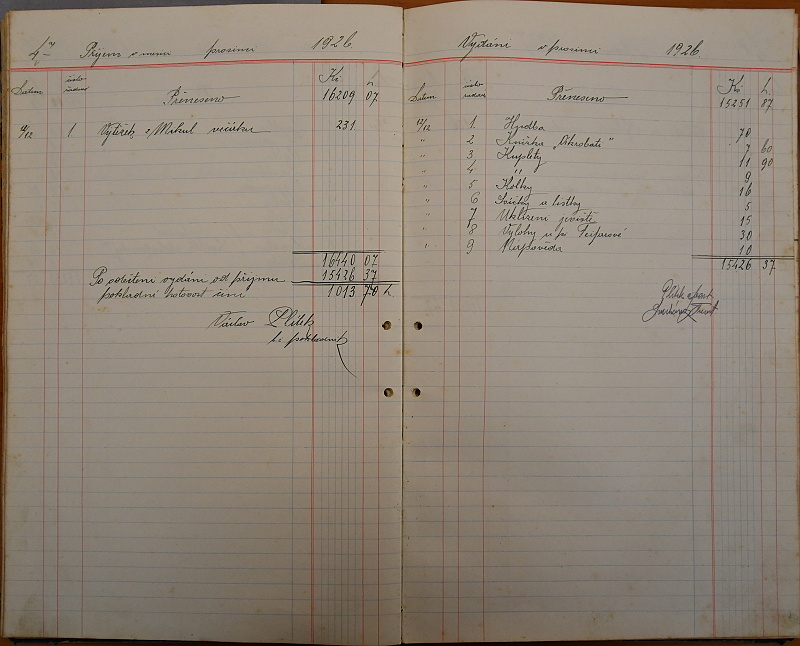 Příjem v měsíci prosinci 1926.
Datum číslo Kč h
Přeneseno 16209 07
12/12 1 Výtěžek z Mikul večírku 231
16440 07
Po odečtení vydání od příjmu 15426 37
pokladní hotovost činí 1013 70 h.
Václav Plítek
t. č. pokladník
Vydání v prosinci 1926.
Datum číslo Kč h
Přeneseno 15251 87
12/12 1. Hudba 70
" 2 Knížka „Akrobati" 7 60
" 3 Kuplety 11 90
" 4 " 9
" 5 Kolky 16
" 6 Svíčky a lístky 5
" 7 Uklízení jeviště 15
" 8 Výlohy 30
" 9 Nápověda 10
15426 37